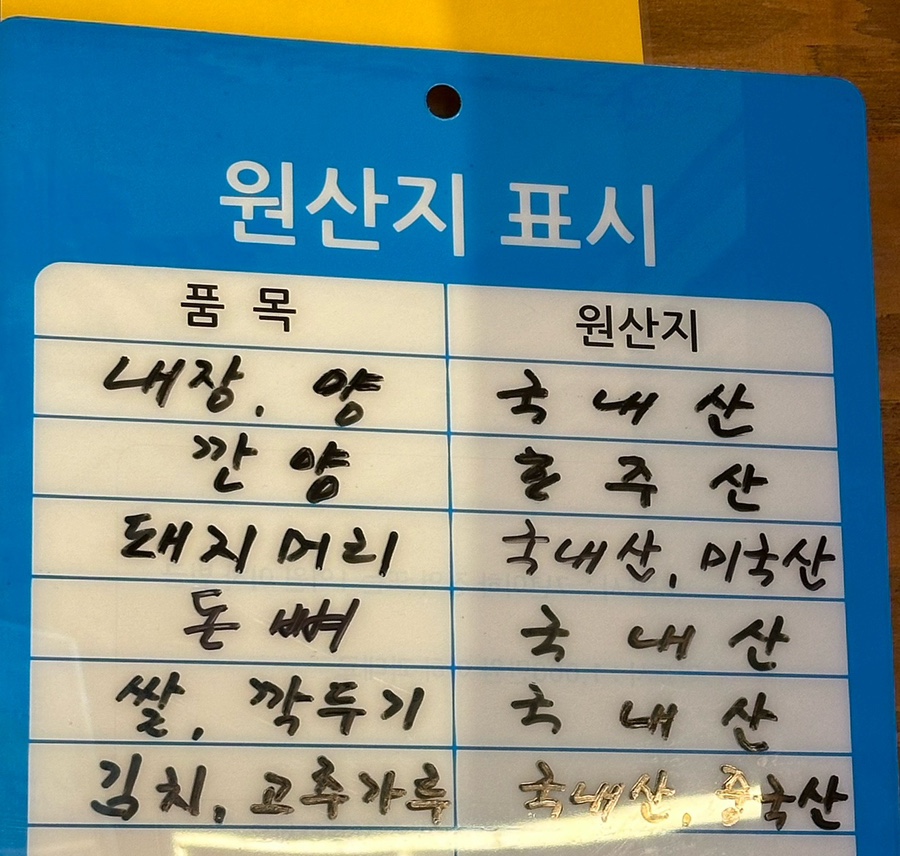 원산지 표시
품 목 원산지
내장, 양 국 내 산
깐 양 호 주 산
돼지머리 국내산, 미국산
돈 뼈 국 내 산
쌀, 깍두기 국 내 산
김치, 고추가루 국내산, 중국산